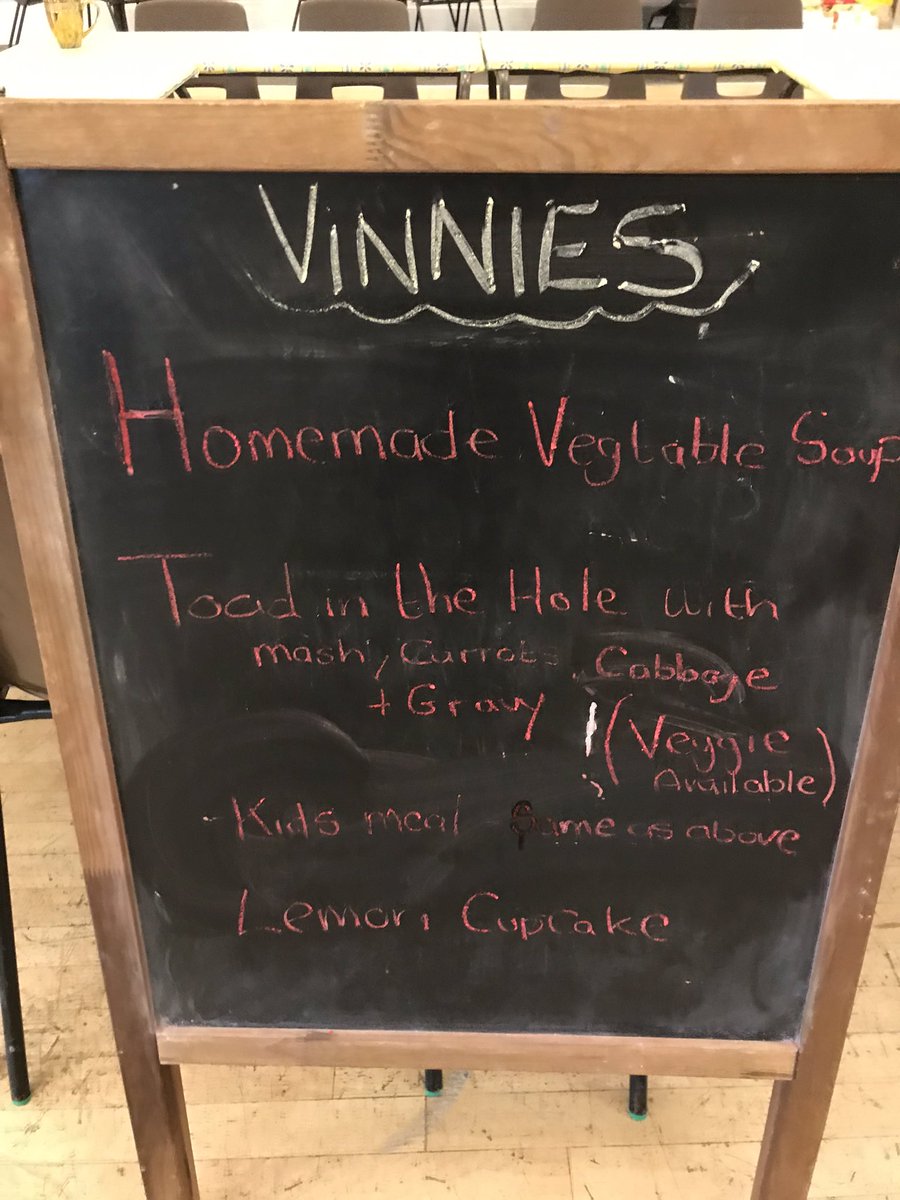 ViNNIES
Homemade Vegtable Soup
Toad in the Hole with
mash, Carrots, Cabbage
+ Gravy
(Veggie
Available)
- Kids meal Same as above
Lemon Cupcake